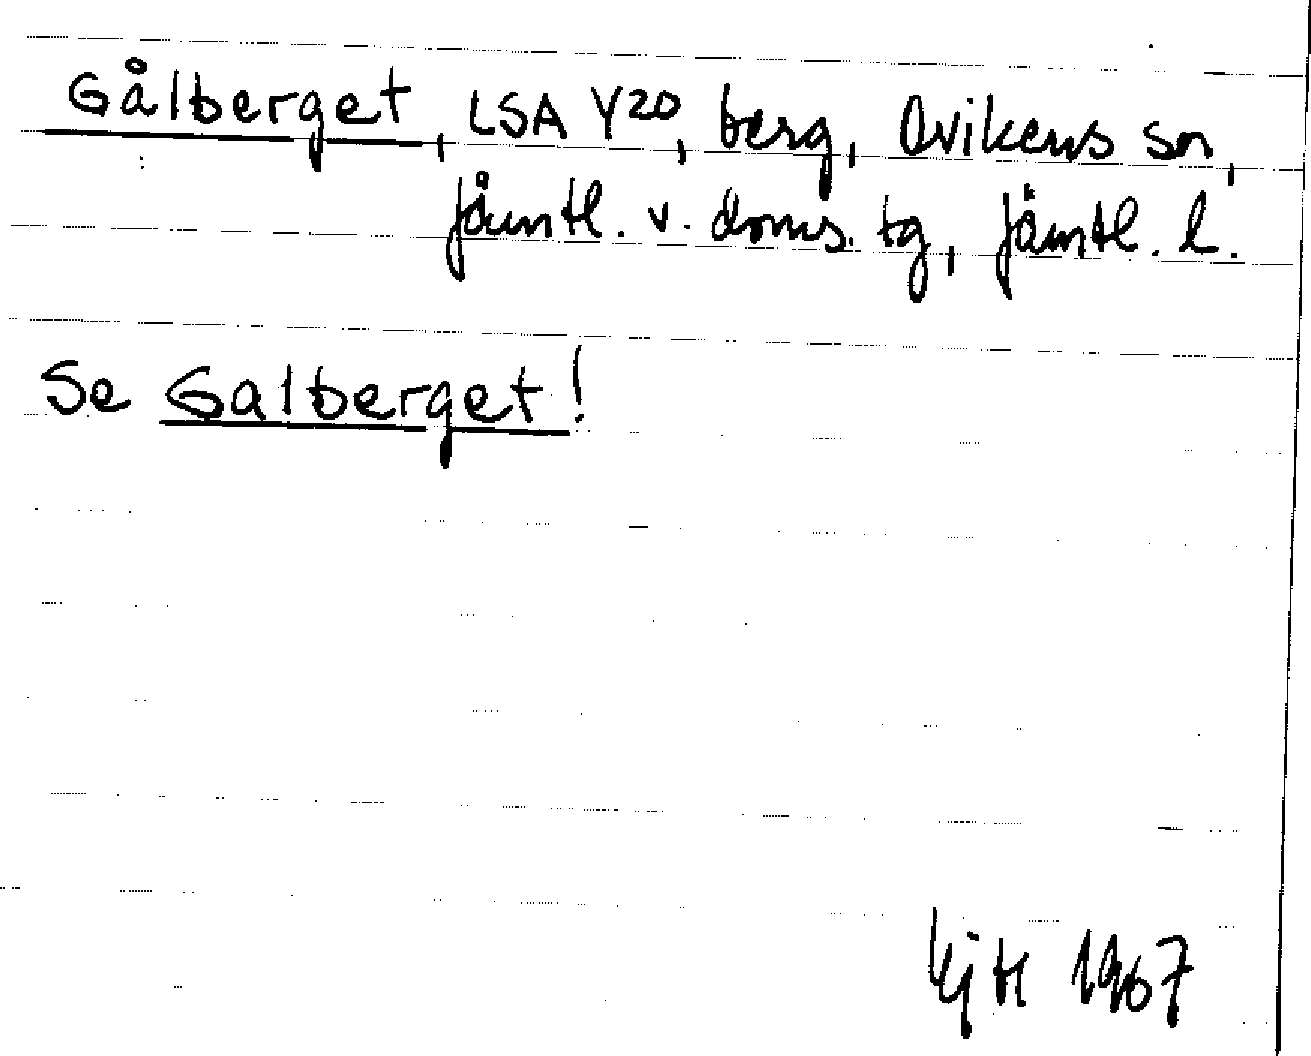 Gålberget, LSA Y20, berg, Ovikens sn,
Jämtl. v. doms. tg, Jämtl. l.
Se Galberget!
1967